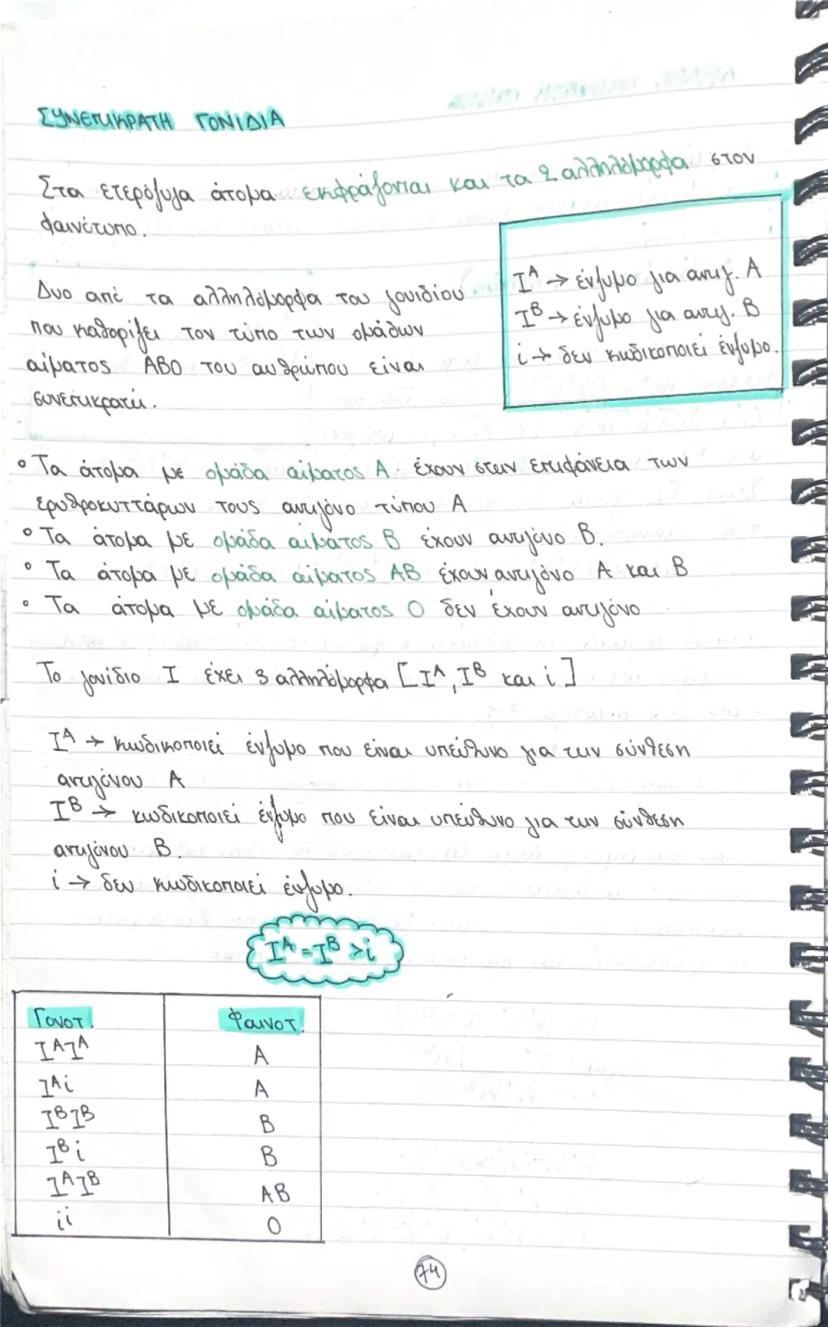 ΣΥΝΕΠΙΚΡΑΤΗ ΓΟΝΙΔΙΑ
Στα ετερόζυγα άτομα εκφράζονται και τα 2 αλληλόμορφα στον
φαινότυπο.
Δυο από τα αλληλόμορφα του γονιδίου
που καθορίζει τον τύπο των ομάδων
αίματος ΑΒΟ του ανθρώπου είναι
συνεπικρατή.
Iᴬ → ένζυμο για αντιγ. Α
Iᴮ → ένζυμο για αντιγ. Β
i → δεν κωδικοποιεί ένζυμο.
° Τα άτομα με ομάδα αίματος Α έχουν στην επιφάνεια των
ερυθροκυττάρων τους αντιγόνο τύπου Α
° Τα άτομα με ομάδα αίματος Β έχουν αντιγόνο Β.
° Τα άτομα με ομάδα αίματος ΑΒ έχουν αντιγόνο Α και Β
° Τα άτομα με ομάδα αίματος Ο δεν έχουν αντιγόνο
Το γονίδιο I έχει 3 αλληλόμορφα [Iᴬ, Iᴮ και i]
Iᴬ → κωδικοποιεί ένζυμο που είναι υπεύθυνο για την σύνθεση
αντιγόνου Α
Iᴮ → κωδικοποιεί ένζυμο που είναι υπεύθυνο για την σύνθεση
αντιγόνου Β.
i → δεν κωδικοποιεί ένζυμο.
Iᴬ = Iᴮ > i
Γονοτ. Φαινοτ.
IᴬIᴬ Α
Iᴬi Α
IᴮIᴮ Β
Iᴮi Β
IᴬIᴮ ΑΒ
ii Ο
74